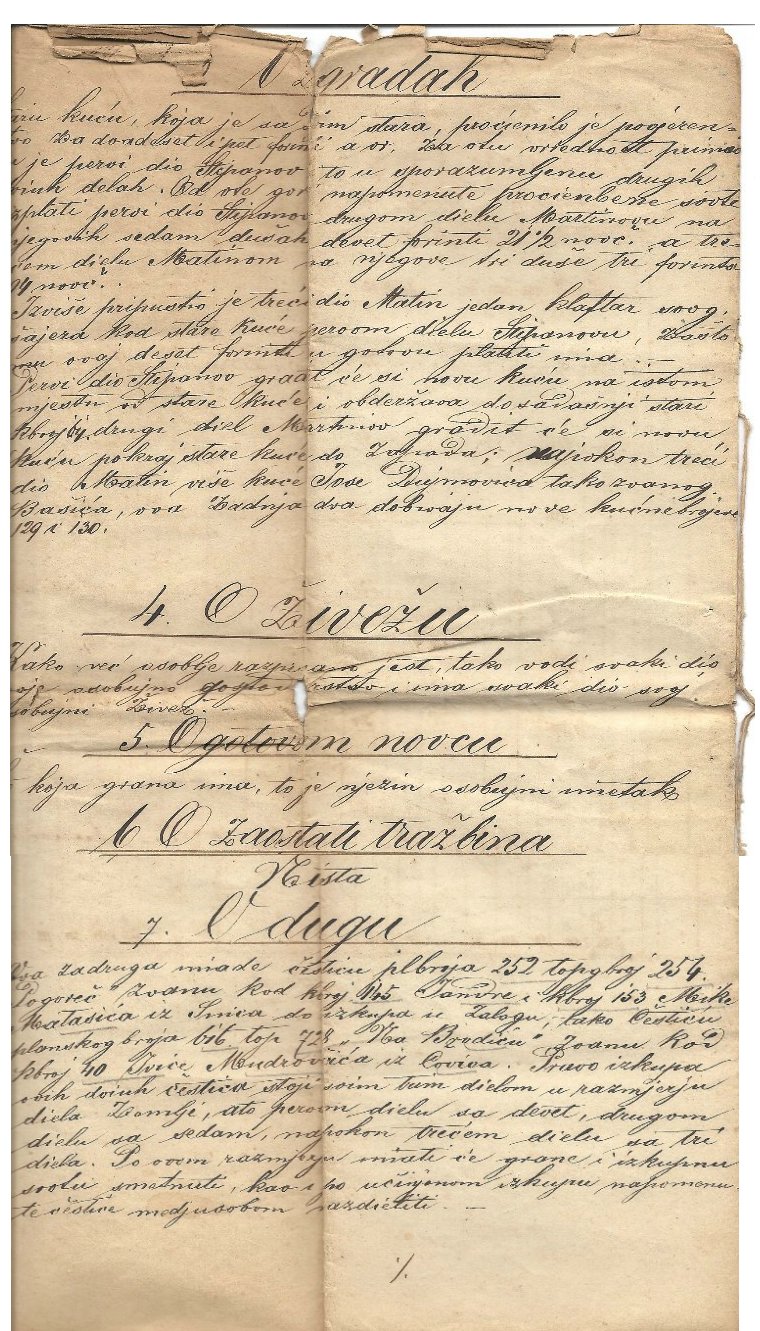 O zgradah
kuću, koja je sa svim stara, procjenilo je povjeren-
stvo za dvadeset i pet forinti a. vr. Za ovu vriednost primio
je pervi dio Stipanov to u sporazumljenu drugih
dviuh delah. Od ove gori napomenute procienbene svote
plati pervi dio Stjepanov drugom dielu Martinovu na
njegovih sedam dušah devet forinti 21 1/2 novč. a tre-
ćem dielu Matinom na njegove tri duše tri forinta
94 novč.
Izviše pripustio je treći dio Matin jedan klaftar svog
kod stare kuće pervom dielu Stipanovu, zašto
mu ovaj deset forinti u gotovu platiti ima. —
Pervi dio Stipanov gradit će si novu kuću na istom
mjestu od stare kuće i obderžava dosadašnji stari
kbroj 64, drugi diel Martinov gradit će si novu
kuću pokraj stare kuće do zapada; najpokon treći
dio Matin više kuće Jose Dujmovića takozvanog
Bašića, ova zadnja dva dobivaju nove kućne brojeve
129 i 130.
4. O Živežu
Kako već osoblje razpisan jest, tako vodi svaki dio
svoje osobujno gospodarstvo i ima svaki dio svoj
osobujni živež. —
5. O gotovom novcu
koja grana ima, to je njezin osobujni imetak
6 O Zaostati tražbina
Ništa
7. O dugu
Ova zadruga imade česticu plbroja 252 topgbroj 254.
Pogoreč zvanu kod kbroj 145 Jandre i kbroj 153 Mike
Matašića iz Snica do izkupa u zalogu, tako česticu
planskog broja 616 top 728 „Na Brodiću" zvanu kod
kbroj 40 Ivice Mudrovčića iz Coviva. Pravo izkupa
ovih dviuh čestica stoji svim trim dielom u razmjerju
diela zemlje, a to pervom dielu sa devet, drugom
dielu sa sedam, napokon trećem dielu sa tri
diela. Po ovom razmjerju imati će grane i izkupnu
svotu smetnuti, kao i po učinjenom izkupu napomenu-
te čestice medjusobom razdieliti. —
·/.